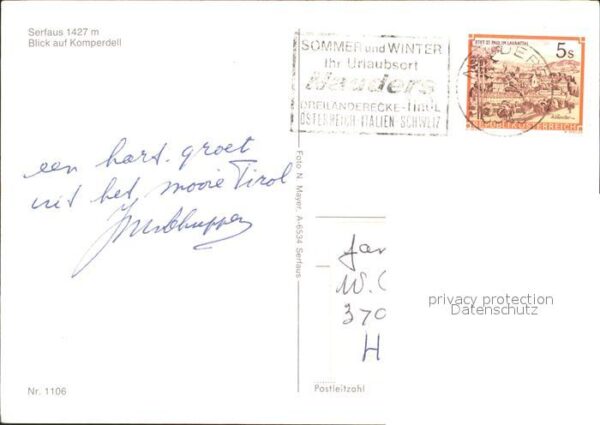 Serfaus 1427 m
Blick auf Komperdell
SOMMER und WINTER
Ihr Urlaubsort
Nauders
DREILÄNDERECKE-TIROL
ÖSTERREICH-ITALIEN-SCHWEIZ
STIFT ST. PAUL IM LAVANTTAL
5s
REPUBLIK ÖSTERREICH
NAUDERS
een hart. groet
uit het mooie Tirol
Foto N. Mayer, A-6534 Serfaus
Jan
W.
370
H
privacy protection
Datenschutz
Nr. 1106
Postleitzahl